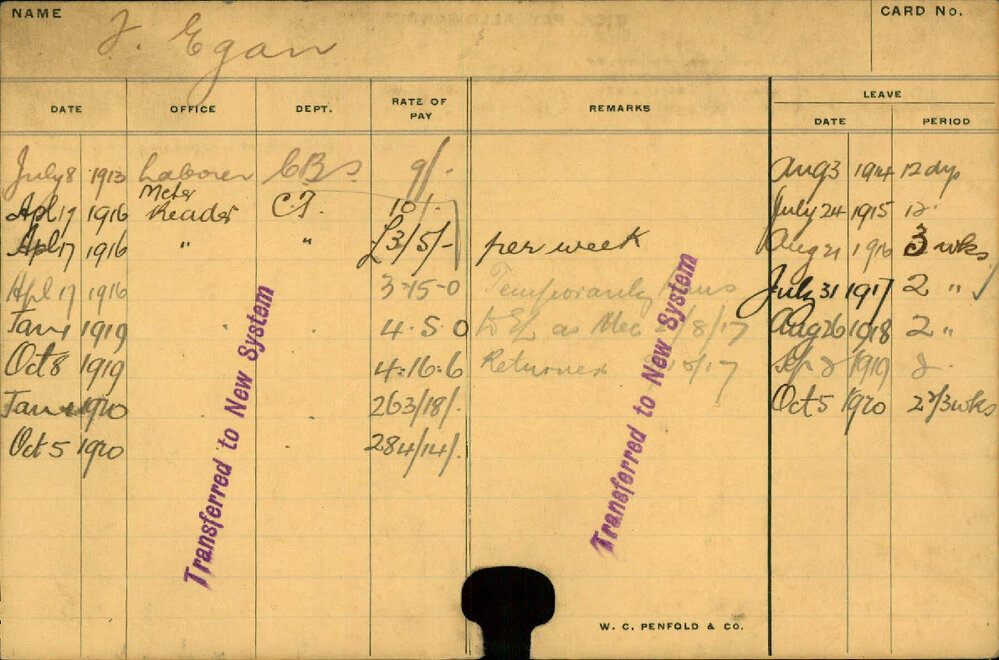 NAME
CARD No.
J. Egan
DATE OFFICE DEPT. RATE OF PAY REMARKS LEAVE
DATE PERIOD
July 8 1913 Laborer 9/- Aug 3 1914 12 dys
Apl 17 1916 Meter Reader C.F. 10/- July 24 1915 12
Apl 17 1916 " " £3/5/- per week Aug 21 1916 3 wks
Apl 17 1916 3-15-0 Temporarily July 31 1917 2 "
Jan 1 1919 " " 4.5.0 to EL as Mec /8/17 Aug 26 1918 2 "
Oct 8 1919 4-16-6 Returned /17 Sep 1919 2
Jan 1 1920 263/18/- Oct 5 1920 2 2/3 wks
Oct 5 1920 284/14/-
Transferred to New System
Transferred to New System
W. C. PENFOLD & CO.